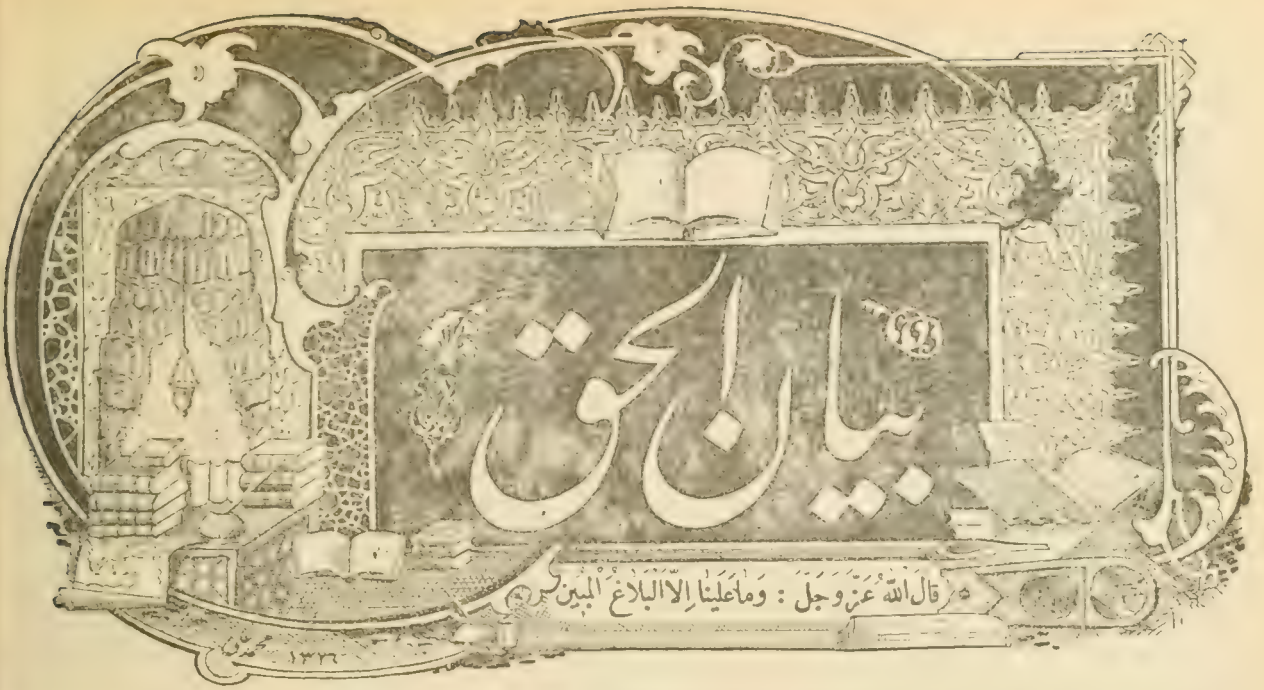 بيان الحق
قَالَ اللّٰهُ عَزَّ وَ جَلَّ : وَمَا عَلَيْنَا اِلَّا الْبَلَاغُ الْمُبِين
١٣٢٦